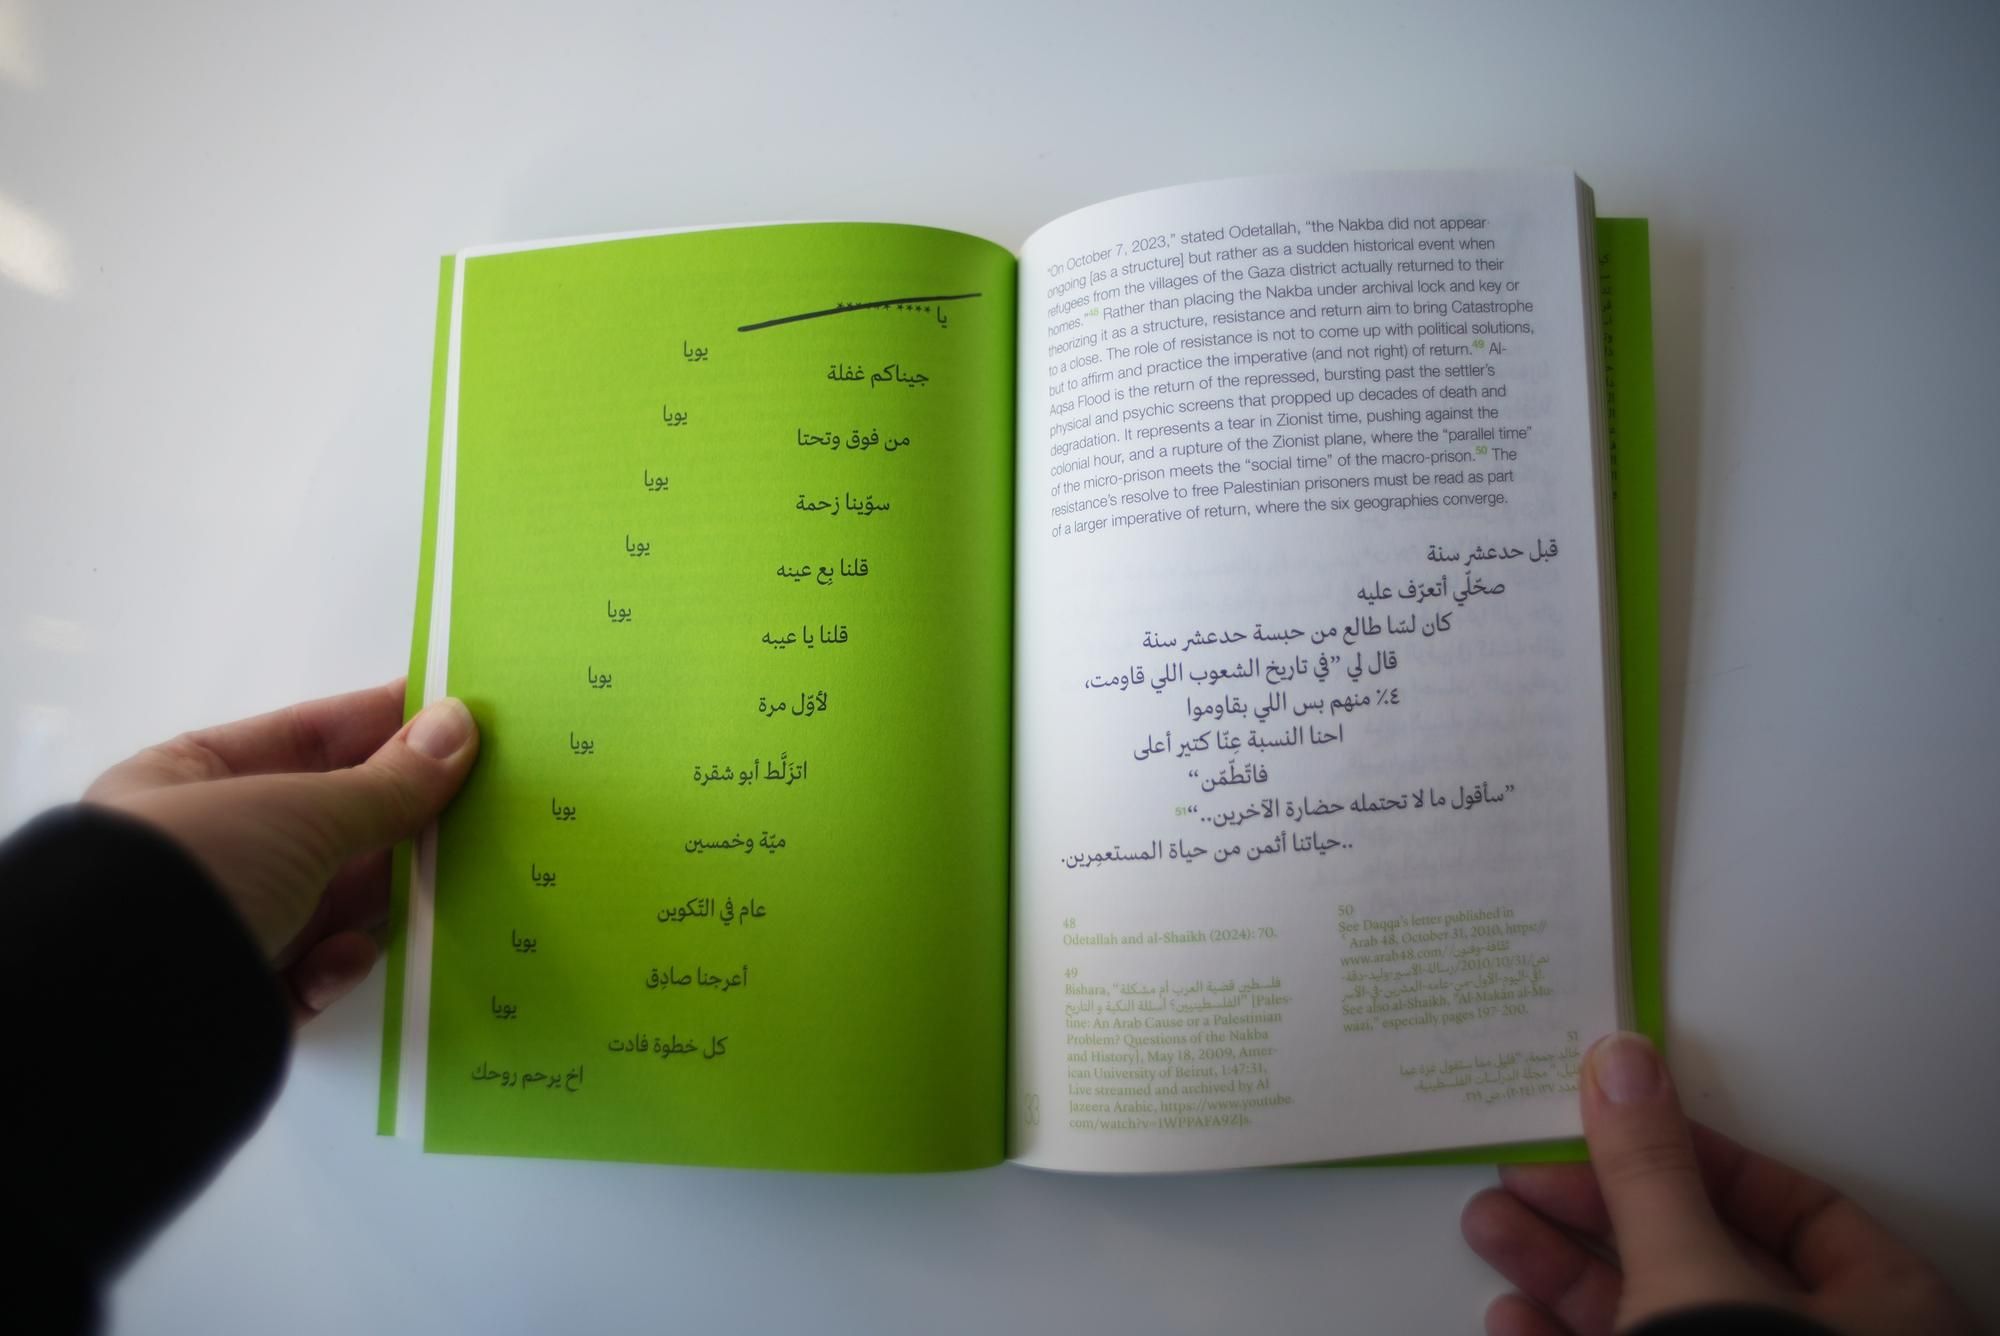 يا **** ******
يويا
جيناكم غفلة
يويا
من فوق وتحتا
يويا
سوّينا زحمة
يويا
قلنا بِع عينه
يويا
قلنا يا عيبه
يويا
لأوّل مرة
يويا
اتزَلَّط أبو شقرة
يويا
ميّة وخمسين
يويا
عام في التّكوين
يويا
أعرجنا صادِق
يويا
كل خطوة فادت
اخ يرحم روحك
"On October 7, 2023," stated Odetallah, "the Nakba did not appear
ongoing [as a structure] but rather as a sudden historical event when
refugees from the villages of the Gaza district actually returned to their
homes."48 Rather than placing the Nakba under archival lock and key or
theorizing it as a structure, resistance and return aim to bring Catastrophe
to a close. The role of resistance is not to come up with political solutions,
but to affirm and practice the imperative (and not right) of return.49 Al-
Aqsa Flood is the return of the repressed, bursting past the settler's
physical and psychic screens that propped up decades of death and
degradation. It represents a tear in Zionist time, pushing against the
colonial hour, and a rupture of the Zionist plane, where the "parallel time"
of the micro-prison meets the "social time" of the macro-prison.50 The
resistance's resolve to free Palestinian prisoners must be read as part
of a larger imperative of return, where the six geographies converge.
قبل حدعشر سنة
صحّلّي أتعرّف عليه
كان لسّا طالع من حبسة حدعشر سنة
قال لي ”في تاريخ الشعوب اللي قاومت،
٤٪ منهم بس اللي بقاوموا
احنا النسبة عِنّا كتير أعلى
فاتّطّمّن“
”سأقول ما لا تحتمله حضارة الآخرين..“51
..حياتنا أثمن من حياة المستعمِرين.
48
Odetallah and al-Shaikh (2024): 70.
49
Bishara, “فلسطين قضية العرب أم مشكلة
الفلسطينيين؟ أسئلة النكبة و التاريخ” [Pales-
tine: An Arab Cause or a Palestinian
Problem? Questions of the Nakba
and History], May 18, 2009, Amer-
ican University of Beirut, 1:47:31,
Live streamed and archived by Al
Jazeera Arabic, https://www.youtube.
com/watch?v=1WPPAFA9ZJs.
50
See Daqqa's letter published in
ʿArab 48, October 31, 2010, https://
www.arab48.com/ثقافة-وفنون/
نص/2010/10/31/رسالة-الأسير-وليد-دقة-
في-اليوم-الأول-من-عامه-العشرين-في-الأسر.
See also al-Shaikh, "Al-Makān al-Mu-
wāzī," especially pages 197-200.
51
خالد جمعة، "قليل مما ستقول غزة عما
قليل،" مجلة الدراسات الفلسطينية،
عدد ١٣٧ (٢٠٢٤)، ص
33